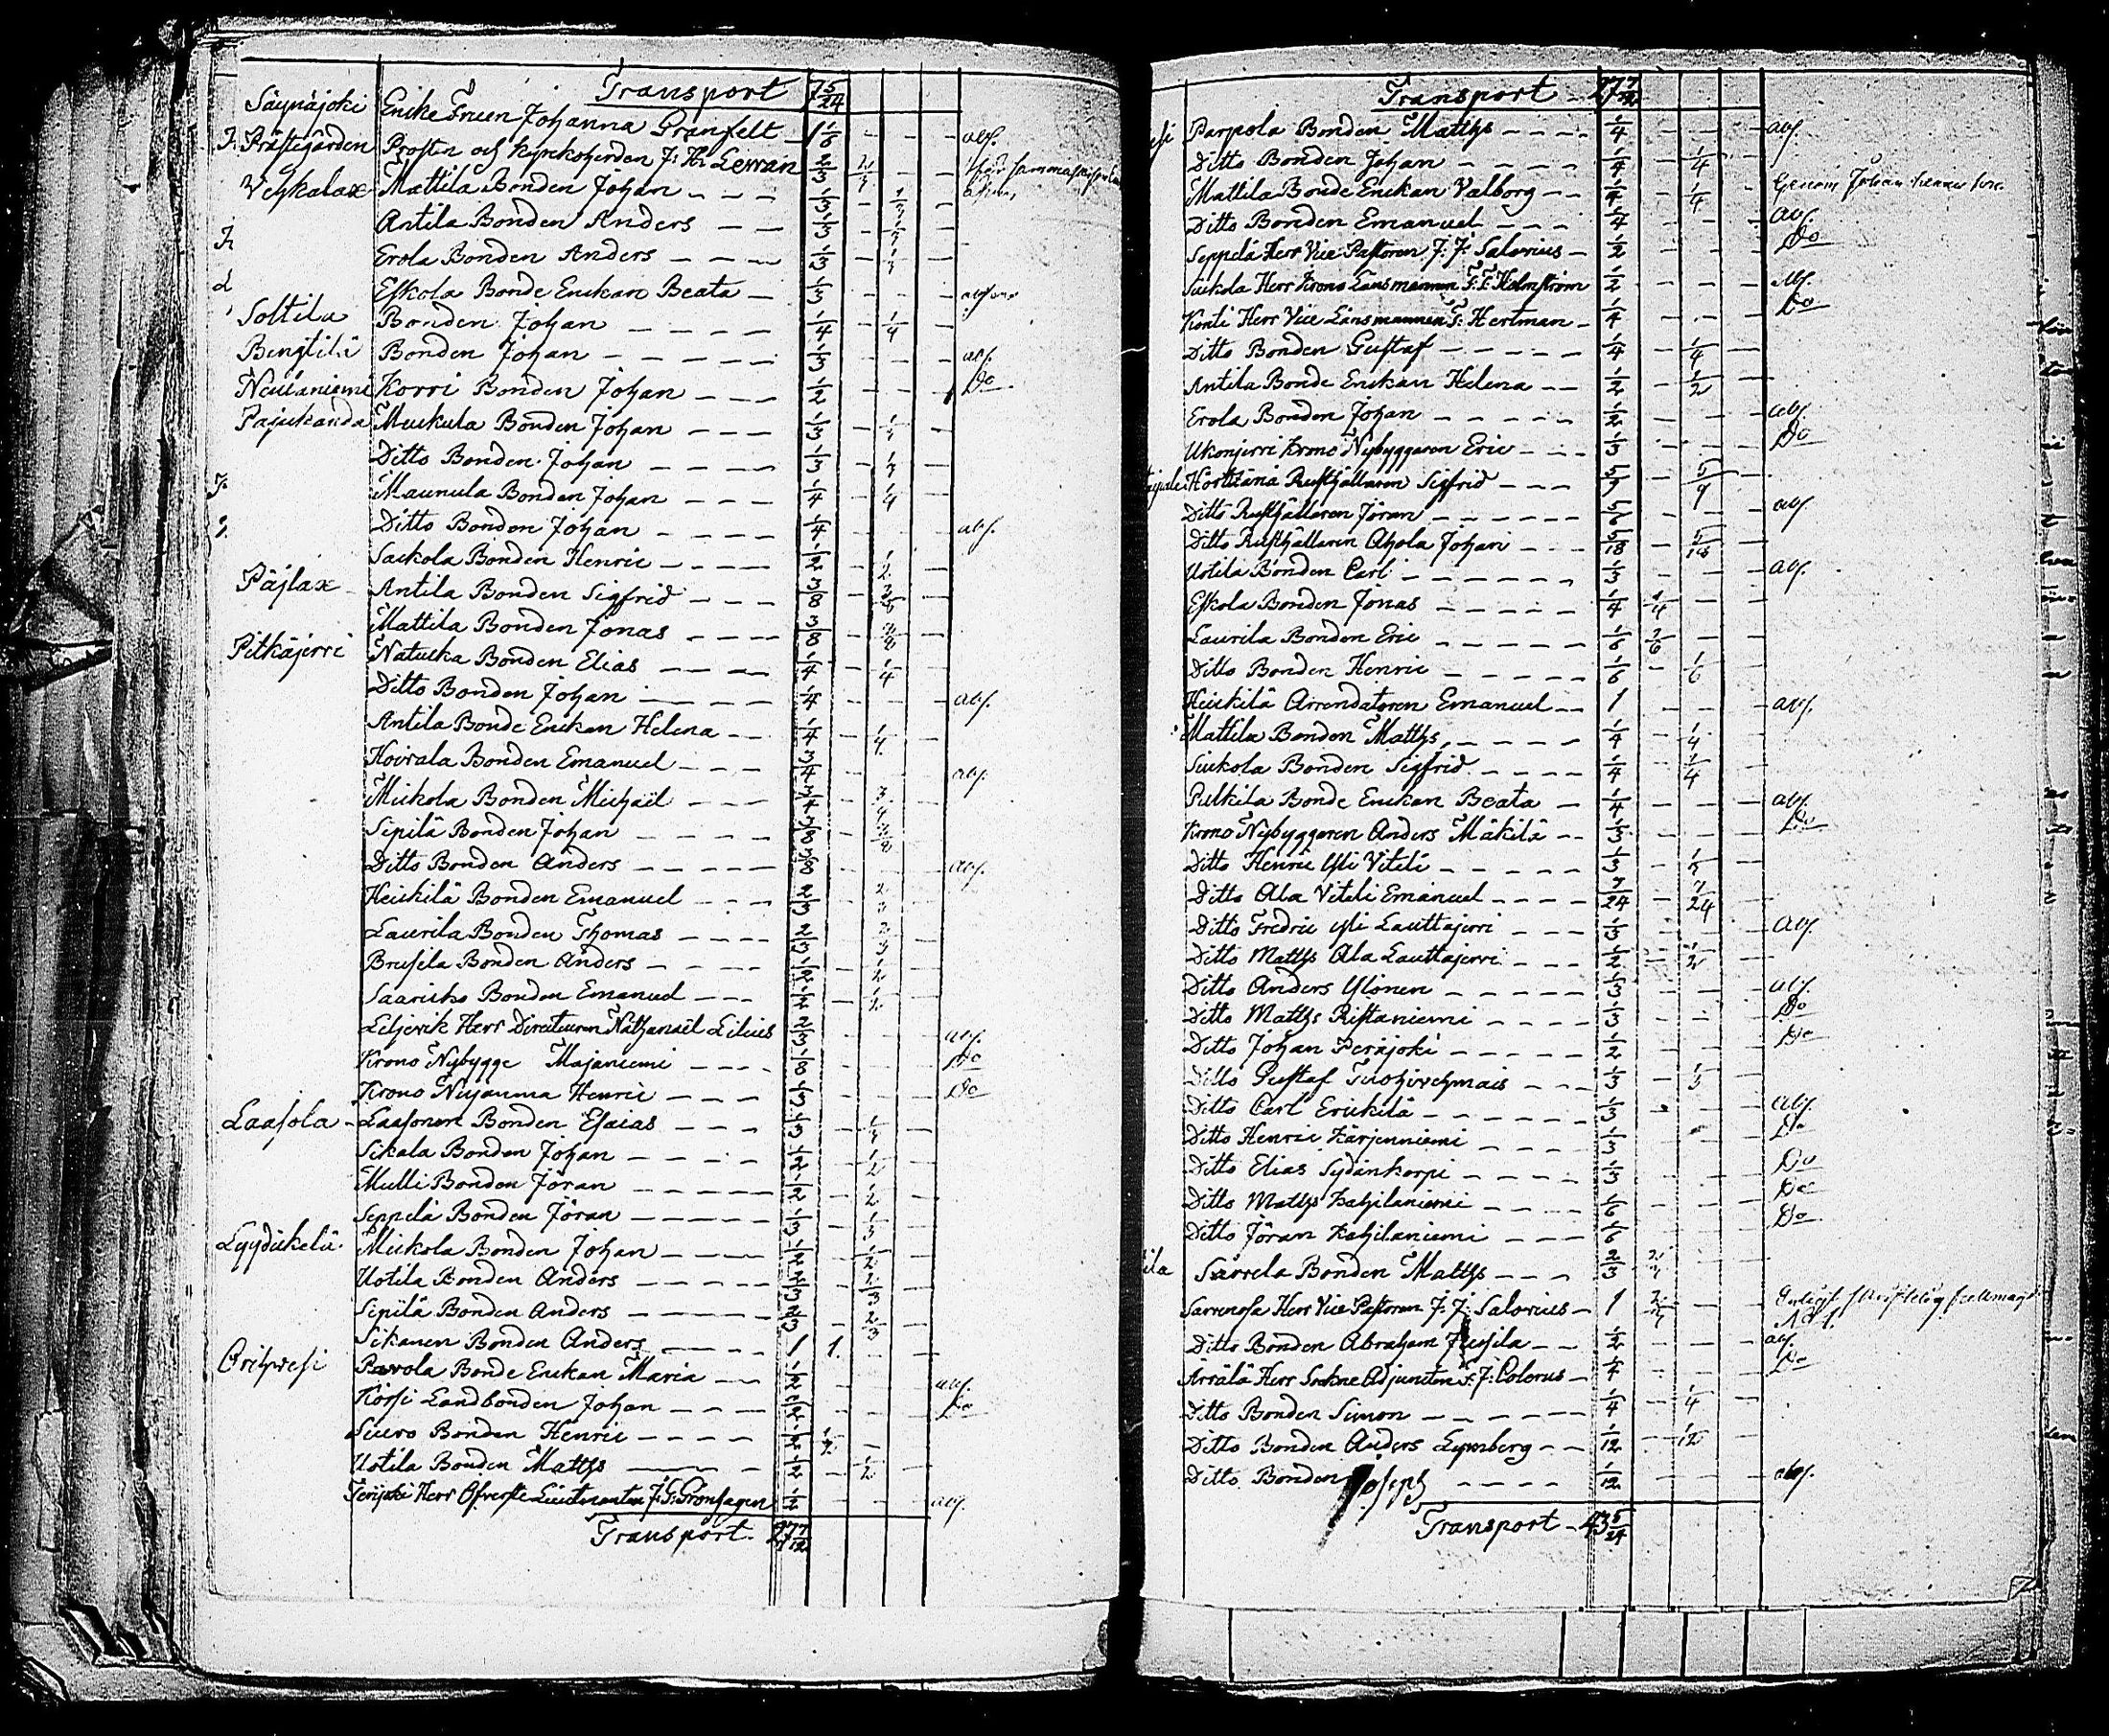 Transport 7 5/24
Säynäjoki Enke Fruen Johanna Granfelt 1 1/6 - - - abs.
Prästegården Prosten och Kyrkoherden J: H: Lewan 2/3 2/3 - -
Veskalax Mattila Bonden Johan 1/3 - 1/3 -
Antila Bonden Anders 1/3 - 1/3 -
Erola Bonden Anders 1/3 - 1/3 -
Eskola Bonde Enckan Beata 1/3 - - -
Soltila Bonden Johan 1/4 - 1/4 -
Bengtilä Bonden Johan 1/3 - - - abs.
Neulaniemi Korri Bonden Johan 1/2 - - - Do
Pajukanda Muckula Bonden Johan 1/3 - 1/3 -
Ditto Bonden Johan 1/3 - 1/3 -
Maunula Bonden Johan 1/4 - 1/4 -
Ditto Bonden Johan 1/4 - - - abs.
Sackola Bonden Henric 1/2 - 1/2 -
Päjlax Antila Bonden Sigfrid 3/8 - 3/8 -
Mattila Bonden Jonas 3/8 - 3/8 -
Pitkäjerri Natucka Bonden Elias 1/4 - 1/4 -
Ditto Bonden Johan 1/4 - - - abs.
Antila Bonde Enckan Helena 1/4 - 1/4 -
Hoivala Bonden Emanuel 3/4 - - - abs.
Mickola Bonden Michaël 3/4 - 3/4 -
Sipilä Bonden Johan 3/8 - 3/8 -
Ditto Bonden Anders 3/8 - - - abs.
Heickilä Bonden Emanuel 2/3 - 2/3 -
Laurila Bonden Thomas 2/3 - 2/3 -
Brusila Bonden Anders 1/2 - 1/2 -
Saaricko Bonden Emanuel 1/2 - 1/2 -
Liljevik Herr Directeuren Nathanaël Lilius 2/3 - - - abs.
Krono Nybygge Majaniemi 1/8 - - - Do
Krono Henric 1/3 - - - Do
Laasola Laasonen Bonden Esaias 1/3 - 1/3 -
Sikala Bonden Johan 1/2 - 1/2 -
Mulli Bonden Jöran 1/2 - 1/2 -
Seppelä Bonden Jöran 1/3 - 1/3 -
Lyydickelä Mickola Bonden Johan 1/2 - 1/2 -
Uotila Bonden Anders 2/3 - 2/3 -
Sipilä Bonden Anders 2/3 - 2/3 -
Sikanen Bonden Anders 1 1. - -
Orihvesi Pavola Bonde Enckan Maria 1/2 - - - abs.
Körsi Landbonden Johan 1/2 - - - Do
Siuro Bonden Henric 1/2 1/2 -
Uotila Bonden Matths 1/2 - 1/2 -
Herr Öfverste Lieutnanten J: F: Grönhagen 1/2 - - - abs.
Transport 27 7/12
Transport 27 7/12
Parpola Bonden Matths 1/4 - - - abs.
Ditto Bonden Johan 1/4 - 1/4 -
Mattila Bonde Enckan Valborg 1/4 - 1/4 - Genom Johan
Ditto Bonden Emanuel 1/4 - - - abs.
Seppelä Herr Vice Pastoren J: J: Salovius 1/2 - - - Do
Suckola Herr Krono Länsmannen F: F: Holmström 1/2 - - - abs.
Konti Herr Vice Länsmannen F: Hertman 1/4 - - - Do
Ditto Bonden Gustaf 1/4 - 1/4 -
Antila Bonde Enckan Helena 1/2 - 1/2 -
Erola Bonden Johan 1/2 - - - abs.
Ukonjerri Krono Nybyggaren Eric 1/3 - - - Do
Rusthållaren Sigfrid 5/9 - 5/9 -
Ditto Rusthållaren Jöran 5/6 - - - abs.
Ditto Rusthållaren Ahola Johan 5/18 - 5/18 -
Uotila Bonden Carl 1/3 - - - abs.
Eskola Bonden Jonas 1/4 1/4 - -
Laurila Bonden Eric 1/6 1/6 - -
Ditto Bonden Henric 1/6 - 1/6 -
Heickilä Arrendatoren Emanuel 1 - - - abs.
Mattila Bonden Matths 1/4 - 1/4 -
Suckola Bonden Sigfrid 1/4 - 1/4 -
Pulkila Bonde Enckan Beata 1/4 - - - abs.
Krono Nybyggaren Anders Mäkilä 1/3 - - - Do
Ditto Henric Ysti Viteli 1/3 - 1/3 -
Ditto Ala Viteli Emanuel 7/24 - 7/24 -
Ditto Fredric Ysli Lauttajerri 1/3 - - - abs.
Ditto Matths Ala Lauttajerri 1/2 - 1/2 -
Ditto Anders Ylönen 1/3 - - - abs.
Ditto Matths Ristaniemi 1/3 - - - Do
Ditto Johan Peräjoki 1/2 - - - Do
Ditto Gustaf 1/3 - 1/3 -
Ditto Carl Erickilä 1/3 - - - abs.
Ditto Henric Kärjenniemi 1/3 - - - Do
Ditto Elias Sydänkorpi 1/3 - - - Do
Ditto Matths Kahilaniemi 1/6 - - - Do
Ditto Jöran Kahilaniemi 1/6 - - - Do
Särrelä Bonden Matths 2/3 2/3 - -
Herr Vice Pastoren J: J: Salovius 1 - - N:o 1.
Ditto Bonden Abraham Jussila 1/2 - - - abs.
Ärrälä Herr Sockne Adjuncten F: J: Polerus 1/4 - - - Do
Ditto Bonden Simon 1/4 - 1/4 -
Ditto Bonden Anders Lymberg 1/12 - 1/12 -
Ditto Bonden Joseph 1/12 - - - abs.
Transport 43 5/24